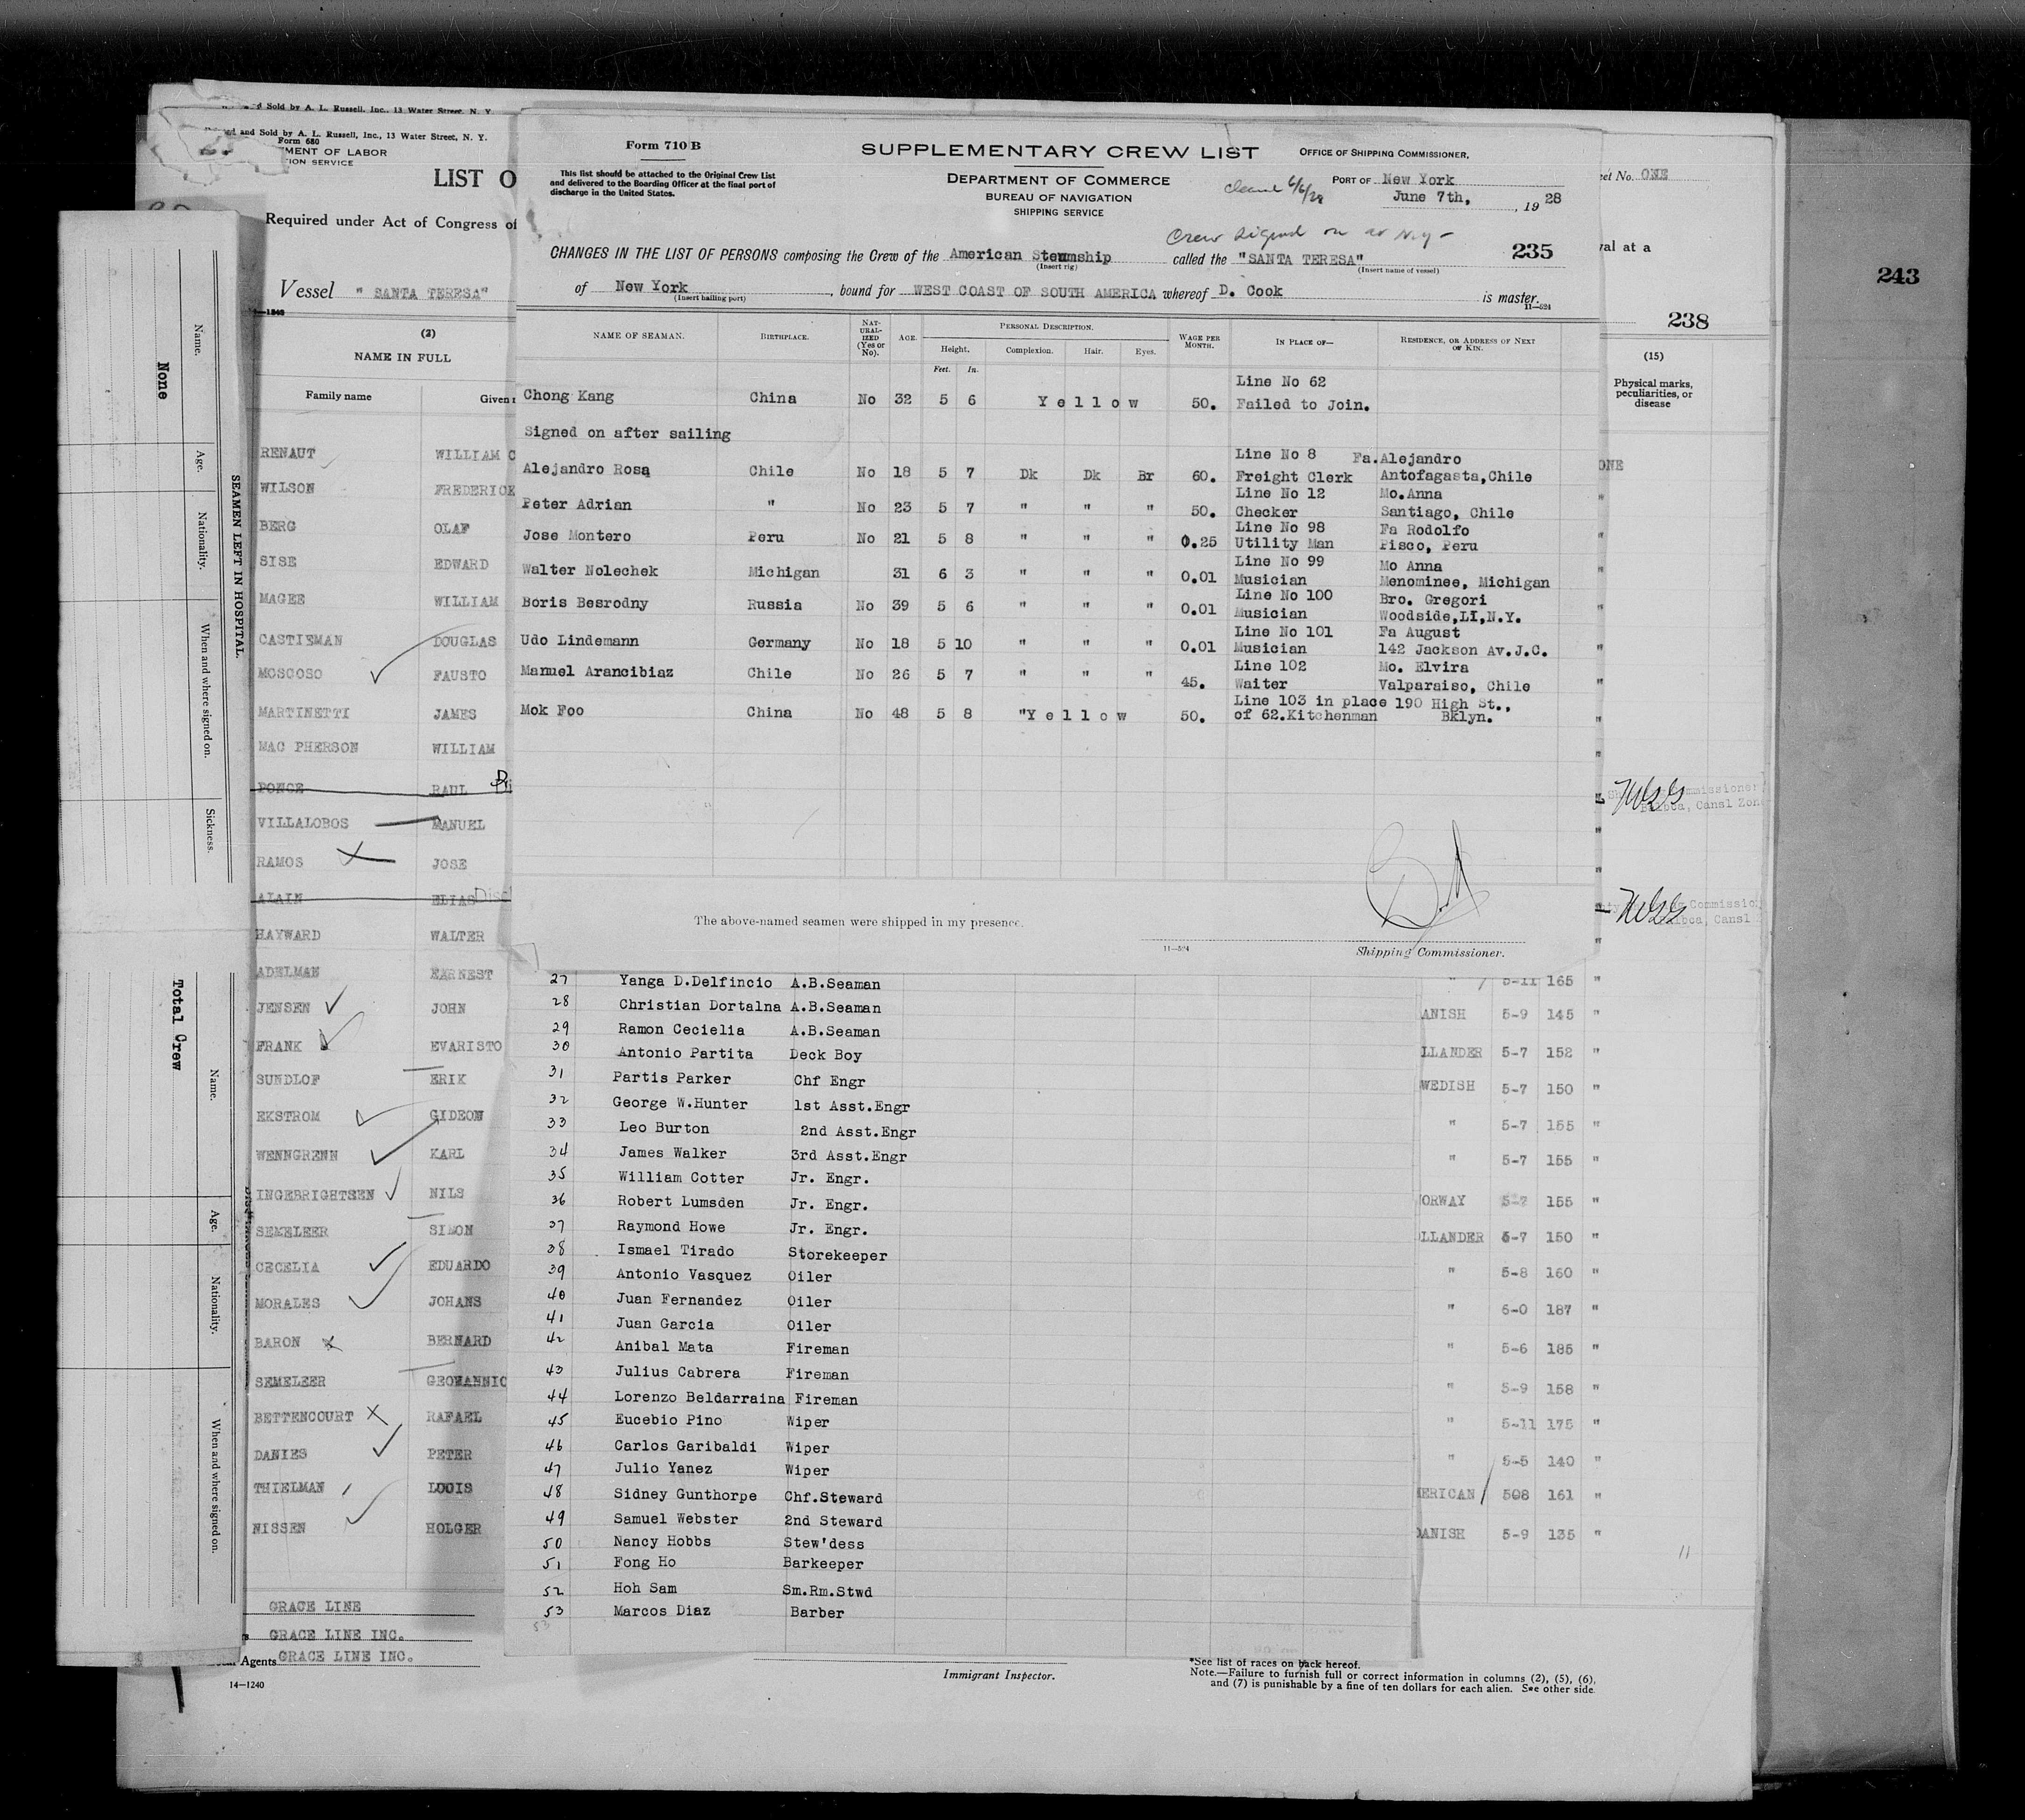 Sold by A. L. Russell, Inc., 13 Water Street, N. Y.
and Sold by A. L. Russell, Inc., 13 Water Street, N. Y.
Form 680
MENT OF LABOR
TION SERVICE
LIST O
Required under Act of Congress of
Vessel " SANTA TERESA"
(2)
NAME IN FULL
Family name
Given
RENAUT WILLIAM C
WILSON FREDERICK
BERG OLAF
SISE EDWARD
MAGEE WILLIAM
CASTIEMAN DOUGLAS
MOSCOSO FAUSTO
MARTINETTI JAMES
MAC PHERSON WILLIAM
PONCE RAUL
VILLALOBOS MANUEL
RAMOS JOSE
ALAIN ELIAS
HAYWARD WALTER
ADELMAN EARNEST
JENSEN JOHN
FRANK EVARISTO
SUNDLOF ERIK
EKSTROM GIDEON
WENNGRENN KARL
INGEBRIGHTSEN NILS
SEMELEER SIMON
CECELIA EDUARDO
MORALES JOHANS
BARON BERNARD
SEMELEER GEOWANNIC
BETTENCOURT RAFAEL
DANIES PETER
THIELMAN LOUIS
NISSEN HOLGER
GRACE LINE
GRACE LINE INC.
Agents GRACE LINE INC.
14—1240
None
Name.
Age.
Nationality.
When and where signed on.
Sickness.
SEAMEN LEFT IN HOSPITAL.
Total Crew
Name.
Age.
Nationality.
When and where signed on.
Form 710 B
This list should be attached to the Original Crew List
and delivered to the Boarding Officer at the final port of
discharge in the United States.
SUPPLEMENTARY CREW LIST
DEPARTMENT OF COMMERCE
BUREAU OF NAVIGATION
SHIPPING SERVICE
OFFICE OF SHIPPING COMMISSIONER,
PORT OF New York
June 7th, , 19 28
Cleared 6/6/28
Crew signed on at N.Y—
235
CHANGES IN THE LIST OF PERSONS composing the Crew of the American Steamship called the "SANTA TERESA"
(Insert rig) (Insert name of vessel)
of New York , bound for WEST COAST OF SOUTH AMERICA whereof D. Cook is master.
(Insert hailing port)
11—524
NAME OF SEAMAN. BIRTHPLACE. NATURALIZED (Yes or No). AGE. PERSONAL DESCRIPTION. WAGE PER MONTH. IN PLACE OF— RESIDENCE, OR ADDRESS OF NEXT OF KIN.
Height. Complexion. Hair. Eyes.
Feet. In.
Line No 62
Chong Kang China No 32 5 6 Yellow 50. Failed to Join.
Signed on after sailing
Line No 8 Fa.Alejandro
Alejandro Rosa Chile No 18 5 7 Dk Dk Br 60. Freight Clerk Antofagasta,Chile
Line No 12 Mo.Anna
Peter Adrian " No 23 5 7 " " " 50. Checker Santiago, Chile
Line No 98 Fa Rodolfo
Jose Montero Peru No 21 5 8 " " " 0.25 Utility Man Pisco, Peru
Line No 99 Mo Anna
Walter Nolechek Michigan 31 6 3 " " " 0.01 Musician Menominee, Michigan
Line No 100 Bro. Gregori
Boris Besrodny Russia No 39 5 6 " " " 0.01 Musician Woodside,LI,N.Y.
Line No 101 Fa August
Udo Lindemann Germany No 18 5 10 " " " 0.01 Musician 142 Jackson Av.J.C.
Line 102 Mo. Elvira
Manuel Arancibiaz Chile No 26 5 7 " " " 45. Waiter Valparaiso, Chile
Line 103 in place 190 High St.,
Mok Foo China No 48 5 8 "Yellow 50. of 62.Kitchenman Bklyn.
The above-named seamen were shipped in my presence.
11—524
Shipping Commissioner.
27 Yanga D.Delfincio A.B.Seaman
28 Christian Dortalna A.B.Seaman
29 Ramon Cecielia A.B.Seaman
30 Antonio Partita Deck Boy
31 Partis Parker Chf Engr
32 George W.Hunter 1st Asst.Engr
33 Leo Burton 2nd Asst.Engr
34 James Walker 3rd Asst.Engr
35 William Cotter Jr. Engr.
36 Robert Lumsden Jr. Engr.
37 Raymond Howe Jr. Engr.
38 Ismael Tirado Storekeeper
39 Antonio Vasquez Oiler
40 Juan Fernandez Oiler
41 Juan Garcia Oiler
42 Anibal Mata Fireman
43 Julius Cabrera Fireman
44 Lorenzo Beldarraina Fireman
45 Eucebio Pino Wiper
46 Carlos Garibaldi Wiper
47 Julio Yanez Wiper
48 Sidney Gunthorpe Chf.Steward
49 Samuel Webster 2nd Steward
50 Nancy Hobbs Stew'dess
51 Fong Ho Barkeeper
52 Hoh Sam Sm.Rm.Stwd
53 Marcos Diaz Barber
53
Immigrant Inspector.
*See list of races on back hereof.
Note.—Failure to furnish full or correct information in columns (2), (5), (6),
and (7) is punishable by a fine of ten dollars for each alien. See other side.
eet No. ONE
val at a
238
(15)
Physical marks,
peculiarities, or
disease
ONE
mmissioner
Balboa, Canal Zon
Commissio
lboa, Canal
" 5-11 165 "
ANISH 5-9 145 "
LLANDER 5-7 152 "
WEDISH 5-7 150 "
" 5-7 155 "
" 5-7 155 "
ORWAY 5-7 155 "
LLANDER 5-7 150 "
" 5-8 160 "
" 6-0 187 "
" 5-6 185 "
" 5-9 158 "
" 5-11 175 "
" 5-5 140 "
MERICAN 508 161 "
DANISH 5-9 135 "
11
243